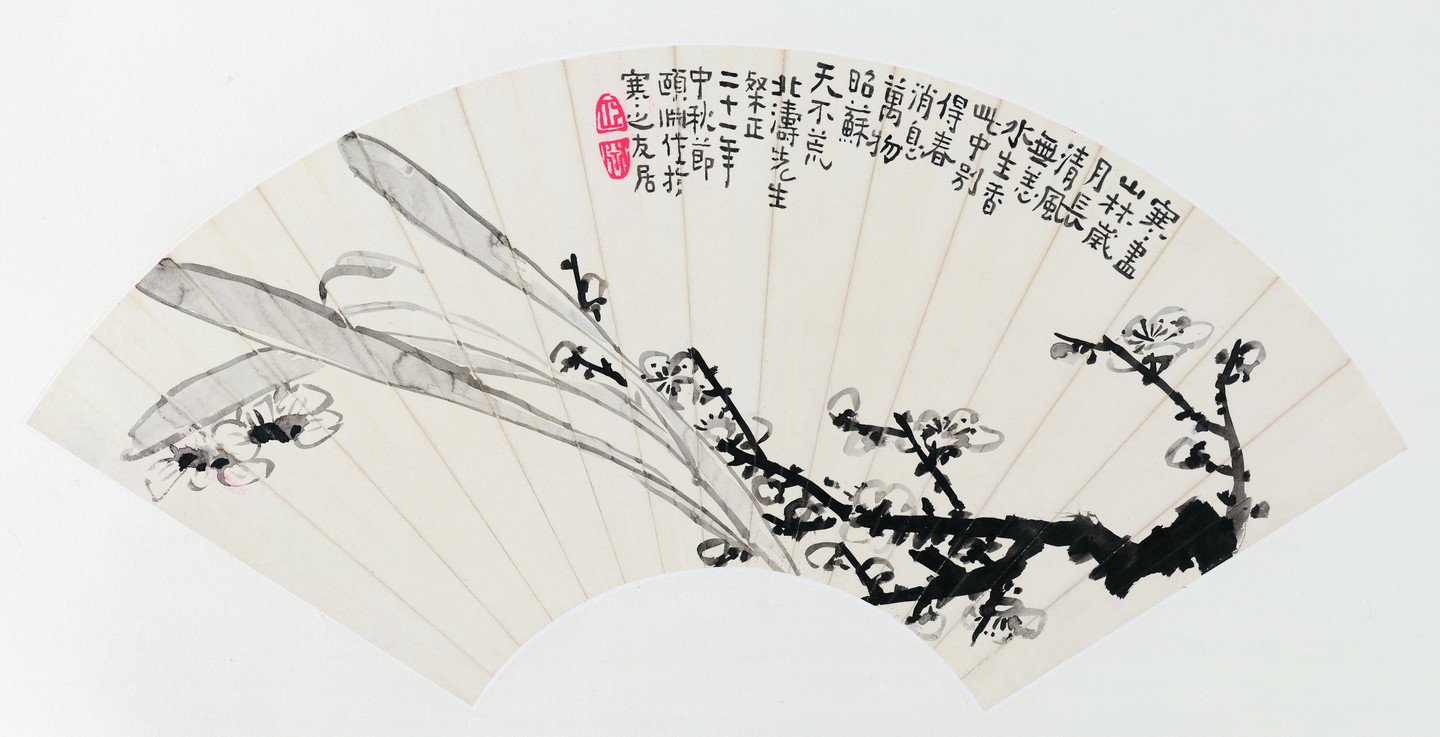 寒盡
山林歲
月長
清風
無恙
水生香
此中別
得春
消息
萬物
昭蘇
天不荒
北濤先生
粲正
二十一年
中秋節
頤淵作於
寒之友居